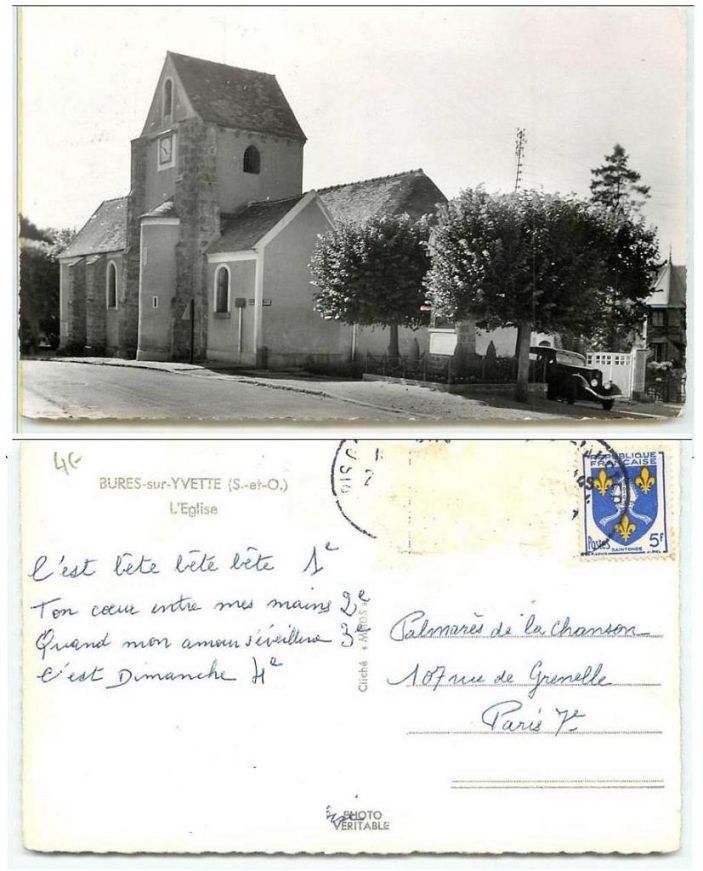 4€
BURES-sur-YVETTE (S.-et-O.)
L'Eglise
C'est bête bête bête 1e
Ton cœur entre mes mains 2e
Quand mon amour s'éveillera 3e
C'est Dimanche 4e
REPUBLIQUE
FRANÇAISE
Postes
SAINTONGE
5F
Cliché
Palmarès de la chanson
107 rue de Grenelle
Paris 7e
PHOTO
VERITABLE